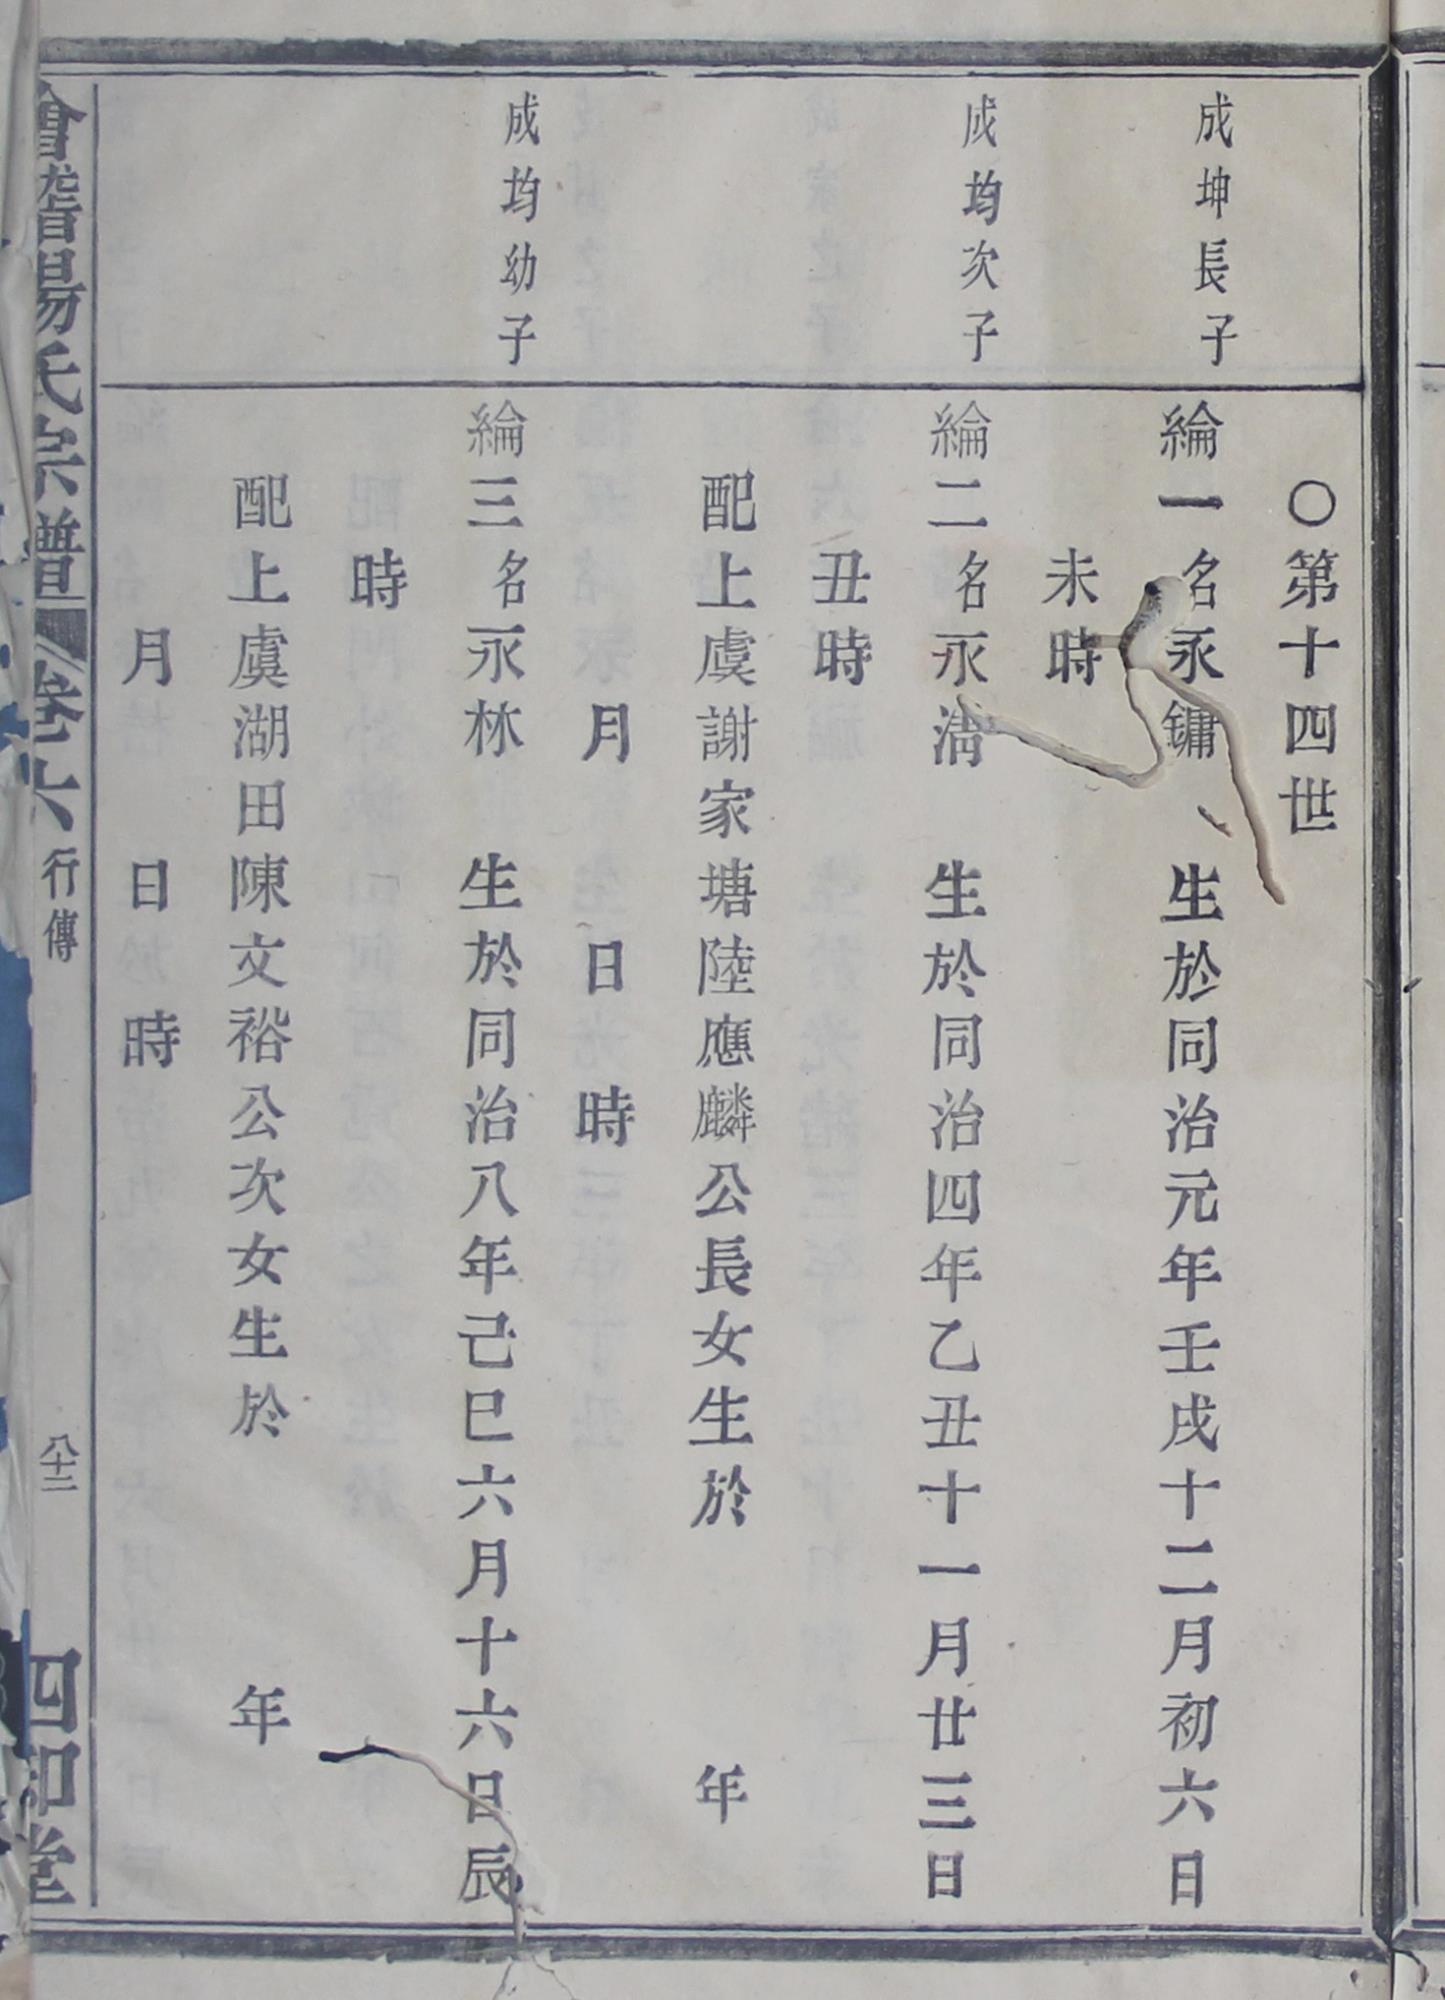 ○第十四世
成坤長子
綸一名永鏞 生於同治元年壬戌十二月初六日
未時
成均次子
綸二名永淸 生於同治四年乙丑十一月廿三日
丑時
配上虞謝家塘陸應麟公長女生於 年
月 日 時
成均幼子
綸三名永林 生於同治八年己巳六月十六日辰
時
配上虞湖田陳文裕公次女生於 年
月 日 時
會稽楊氏宗譜 卷六 行傳 八十二 四知堂